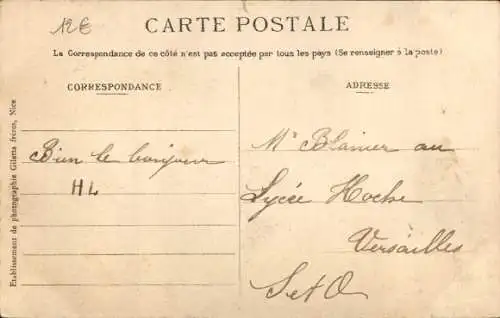 12€
CARTE POSTALE
La Correspondance de ce côté n'est pas acceptée par tous les pays (Se renseigner à la poste)
CORRESPONDANCE
Bien le bonjour
HL
ADRESSE
Mr Blanier au
Lycée Hoche
Versailles
S et O
Etablissement de photographie Giletta frères, Nice